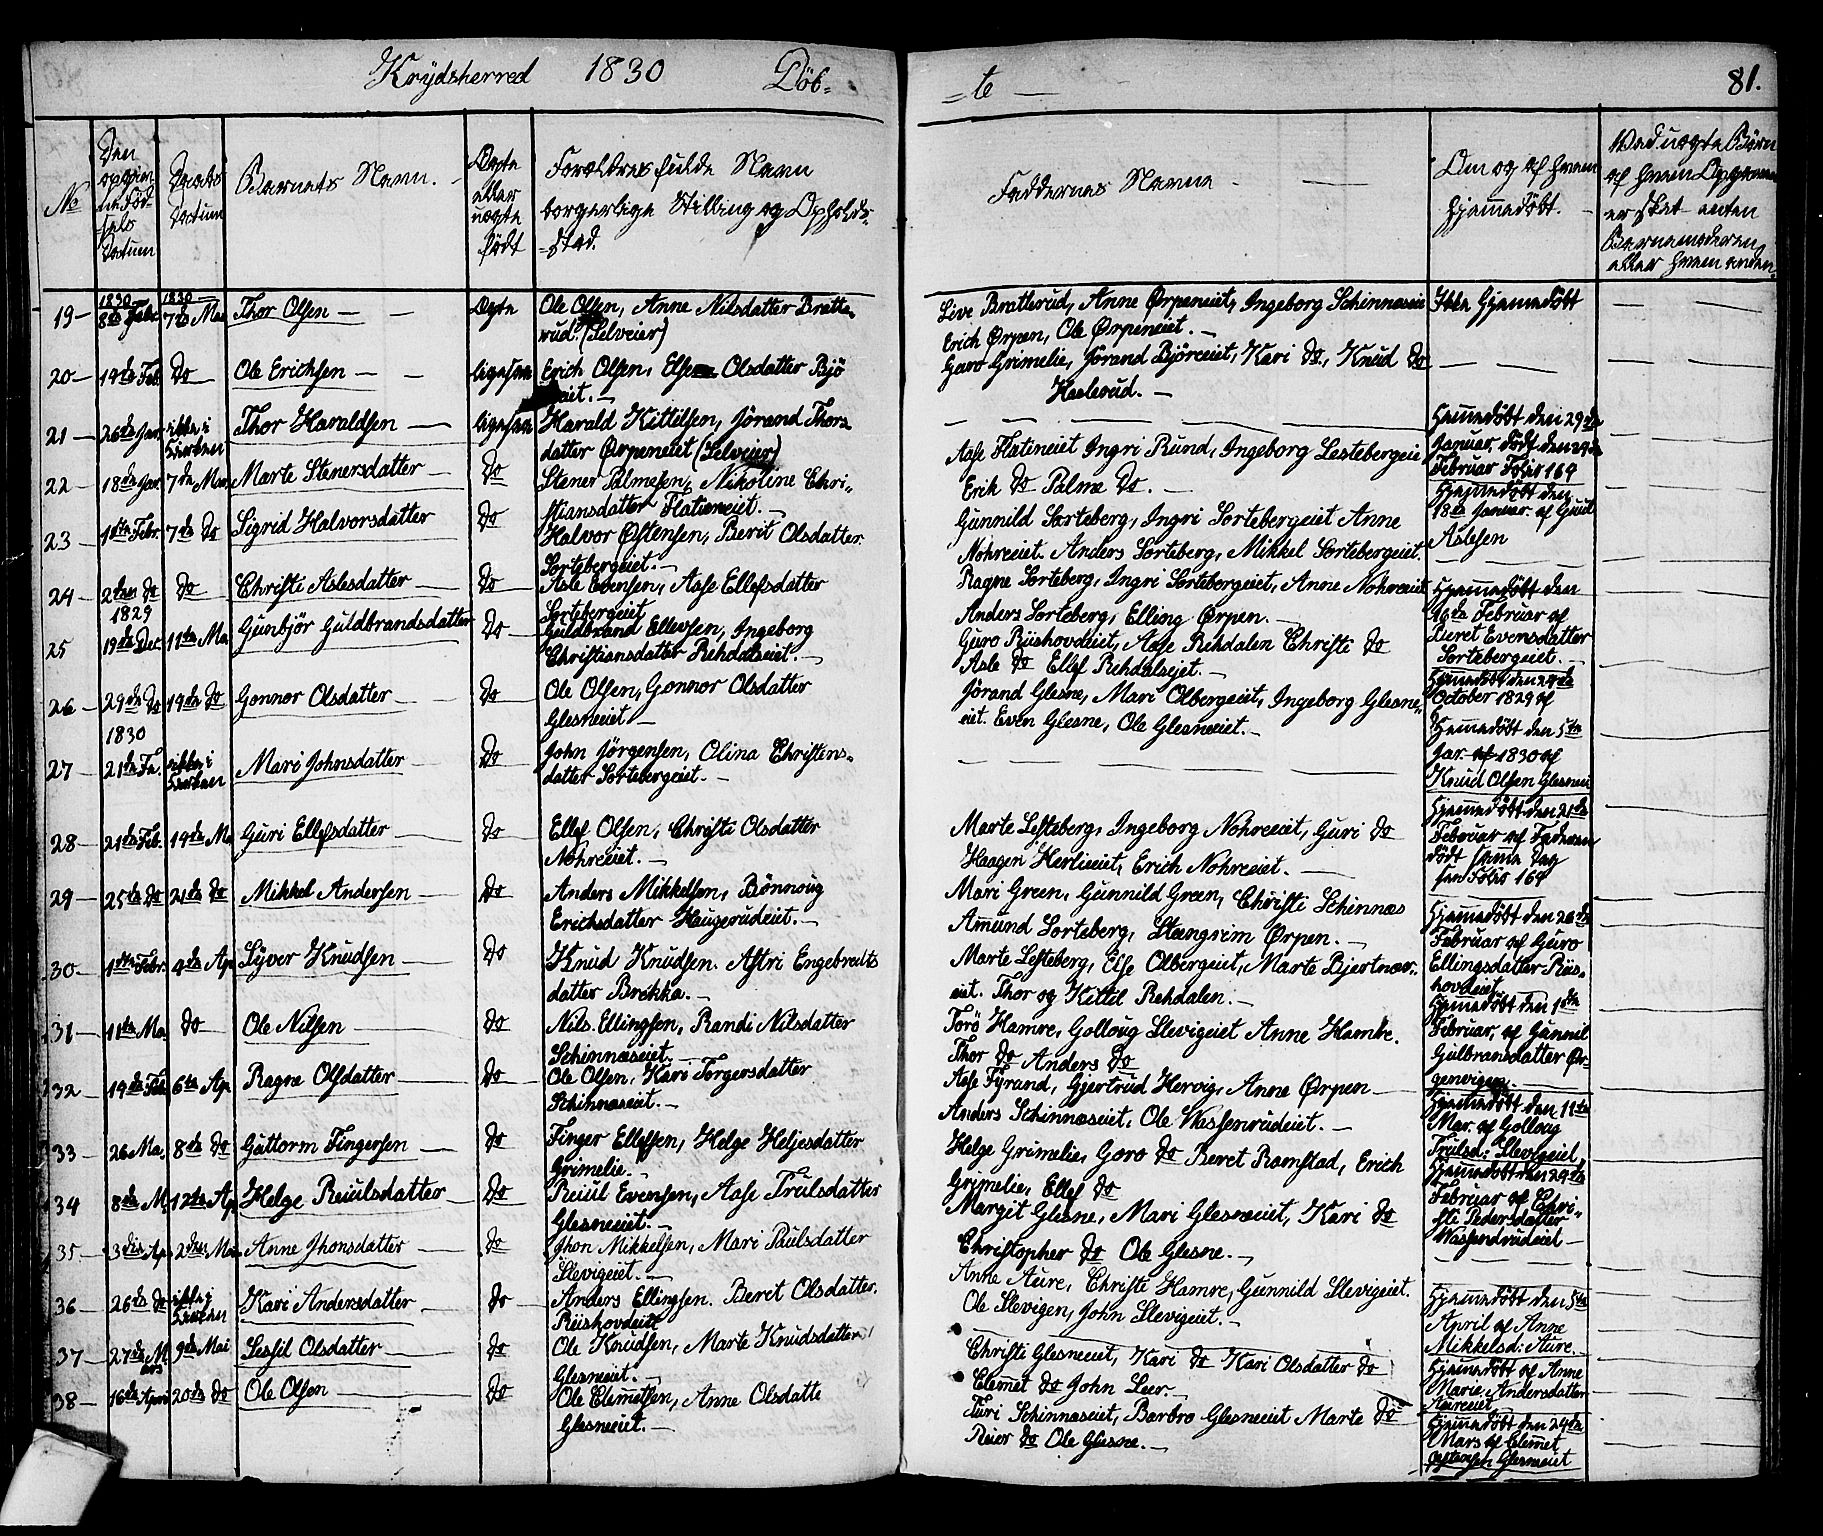 Krydsherred 1830 Döb-
-te- 81.
No
Den opgivne Fødsels Datum
Daabs Datum
Barnets Navn.
Ægte eller uægte födt
Forældres fulde Navn borgerlige Stilling og Opholds-sted.
Faddernes Navne
Om og af hvem hjemmedöbt.
Ved uægte Börn af hvem Opgaven er skeet enten Barnemoderen eller hvem anden
19 1830 8de Febr. 1830 7de Ma. Thor Olsen Ægte Ole Olsen, Anne Nilsdatter Bratte-
rud. (Selveier)
Live Bratterud, Anne Ørpeneiet, Ingeborg Schinnæseie
Erich Ørpen, Ole Ørpeneiet.
Ikke hjemmedöbt
20 14de Feb. Do Ole Erichsen ligesaa Erich Olsen, Else Olsdatter Bjö
eiet.
Goro Grimelie, Jörand Björeeiet, Kari Do, Knud Do
Haslerud.
21 26de Jan. ikke i Kirken Thor Haraldsen ligesaa Harald Kittilsen, Jörand Thors
datter Ørpeneiet (Selveier)
Hjemmedöbt den 29de
Januar, död den 24de
Februar Folio 169
22 18de Jan. 7de Mar. Marte Stenersdatter Do Stener Palmesen, Nikoline Chri-
stiansdatter Flateneiet.
Aase Flateneiet Ingri Rund, Ingeborg Lesteberg eie
Erik Do Palme Do.
Hjemmedöbt den
18de Januar af Guul
Aslesen
23 1ste Febr. 7de Do Sigrid Halvorsdatter Do Halvor Östensen, Berit Olsdatter
Sortebergeiet.
Gunnild Sorteberg, Ingri Sortebergeiet Anne
Nohreeiet. Anders Sorteberg, Mikkel Sortebergeiet
24 2den Do Do Christi Aslesdatter Do Asle Evensen, Aase Ellefsdatter
Sortebergeiet
Ragne Sorteberg, Ingri Sortebergeiet, Anne Nohreeiet
Anders Sorteberg, Elling Ørpen.
Hjemmedöbt den
16de Februar af
Lieret Evensdatter
Sortebergeiet.
25 1829 19de Dec. 11te Ma. Gunbjör Guldbrandsdatter Do Guldbrand Ellevsen, Ingeborg
Christiansdatter Rehdalseiet.
Guro Riishovdeiet, Aase Rehdalen Christi Do
Asle Do Ellef Rehdalseiet.
Hjemmedöbt den 24de
October 1829 af
26 29de Do 19de Do Gonnor Olsdatter Do Ole Olsen, Gonnor Olsdatter
Glesneeiet
Jörand Glesne, Mari Olbergeiet, Ingeborg Glesne-
eiet. Even Glesne, Ole Glesneeiet.
Hjemmedöbt den 5te
Jar. af 1830 af
Knud Olsen Glesneei
27 1830 21de Fe. ikke i Kirken Mari Johnsdatter Do John Jörgensen, Olina Christens-
datter Sortebergeiet.
Hjemmedöbt den 21de
Februar af Faderen
död samme Dag
see Folio 169
28 21de Feb. 14de Ma Guri Ellefsdatter Do Ellef Olsen, Christi Olsdatter
Nohreeiet.
Marte Lesteberg, Ingeborg Nohreeiet, Guri Do
Haagen Herlieeiet, Erich Nohreeiet.
29 25de Do 21de Do Mikkel Andersen Do Anders Mikkelsen, Rönnoug
Erichsdatter Haugerudeiet.
Mari Green, Gunnild Green, Christi Schinnæs
Amund Sorteberg, Steengrim Ørpen.
Hjemmedöbt den 26de
Februar af Guro
Ellingsdatter Riis-
hovdeiet
30 1ste Febr. 4de Ap. Syver Knudsen Do Knud Knudsen. Astri Engebredts
datter Brekka.
Marte Lesteberg, Else Olbergeiet, Marte Bjertnæs-
eiet. Thor og Kittil Rehdalen.
Hjemmedöbt den 1ste
Februar, af Gunnil
Gulbransdatter Ør-
genvigen.
31 11te Ma. Do Ole Nilsen Do Nils Ellingsen, Randi Nilsdatter
Schinnæseiet.
Torö Hamre, Golloug Slevigeiet Anne Hamre.
Thor Do Anders Do
Hjemmedöbt den 11te
Mar. af Golloug
Trulsd: Slevigeiet
32 14de Feb. 6te Ap. Ragne Olsdatter Do Ole Olsen, Kari Torgersdatter
Schinnæseiet.
Aase Fyrand, Gjertrud Hervig, Anne Ørpen
Anders Schinnæseiet, Ole Wassenrudeiet.
Hjemmedöbt den 24de
Februar af Chri-
sti Pedersdatter
Wassendrudeiet
33 26 Ma. 8de Do Guttorm Fingersen Do Finger Ellefsen, Helge Heljesdatter
Grimelie.
Helge Grimelie, Goro Do Beret Ramstad, Erich
Grimelie, Ellef Do
34 8de M. 12te Ap. Helge Reiulsdatter Do Reiul Evensen, Aase Trulsdatter
Glesneeiet.
Margit Glesne, Mari Glesneeiet, Kari Do
Christopher Do Ole Glesne.
35 3die Ap. 2den Mai Anne Jhonsdatter Do Jhon Mikkelsen, Mari Paulsdatter
Slevigeiet.
Anne Aure, Christi Hamre, Gunnild Slevigeiet.
Ole Slevigen, John Slevigeiet.
Hjemmedöbt den 5te
April af Anne
Mikkelsd: Aure.
36 26de Do ikke i Kirken Kari Andersdatter Do Anders Ellingsen. Beret Olsdatter.
Riishovdeiet
Hjemmedöbt af Anne
Marie Andersdatter
Aureeiet
37 27de Mars 9de Mai Sessil Olsdatter Do Ole Knudsen, Marte Knudsdatter
Glesneeiet.
Christi Glesneeiet, Kari Do Kari Olsdatter Do
Clemet Do John Leer.
Hjemmedöbt den 29de
Mars af Clemet
Östensen Glesneeiet
38 16de April 20de Do Ole Olsen Do Ole Clemetsen, Anne Olsdatte
Glesneeiet.
Turi Schinnæseiet, Barbro Glesneeiet Marte Do
Reier Do Ole Glesne.